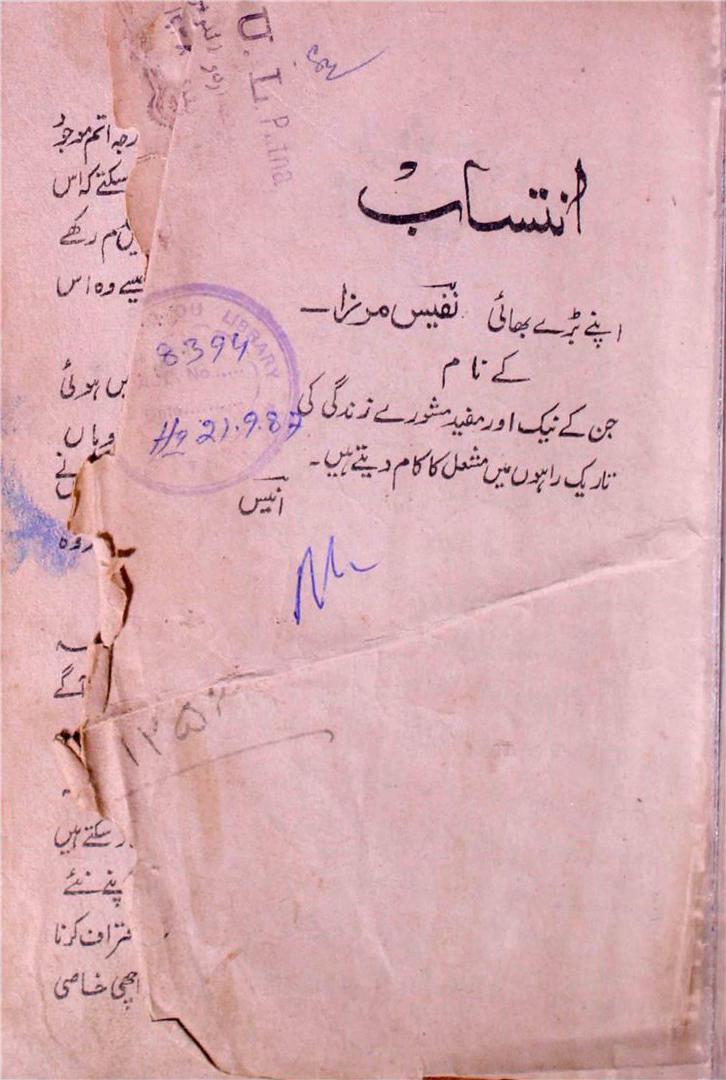 U. L. Patna
انتساب
اپنے بڑے بھائی نفیس مرزا—
کے نام
جن کے نیک اور مفید مشورے زندگی کی
تاریک راہوں میں مشعل کا کام دیتے ہیں۔
انیس
URDU LIBRARY
8394
No.....
21.9.87
۱۳۵۲
رجہ اتم موجود
سکتے کہ اس
رکھے
وہ اس
ہوئی
وہاں
نے
گے
سکتے ہیں
پنے نئے
کرنا
اچھی خاصی